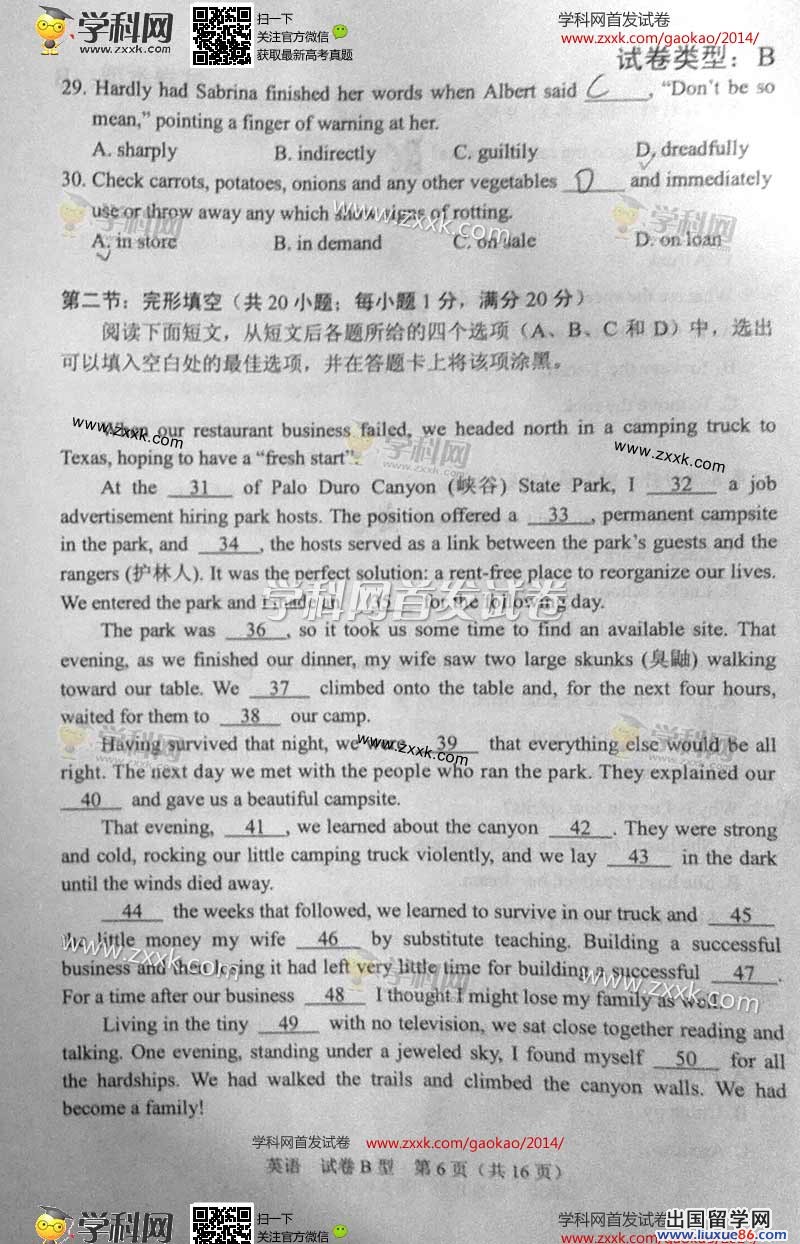 学科网 扫一扫 学科网首发试卷
关注官方微信
www.zxxk.com 获取最新高考真题 www.zxxk.com/gaokao/2014/
试卷类型：B
29. Hardly had Sabrina finished her words when Albert said C , “Don't be so
mean,” pointing a finger of warning at her.
A. sharply B. indirectly C. guiltily D. dreadfully
30. Check carrots, potatoes, onions and any other vegetables D and immediately
use or throw away any which show signs of rotting.
A. in store B. in demand C. on sale D. on loan
第二节：完形填空（共20小题；每小题1分，满分20分）
阅读下面短文，从短文后各题所给的四个选项（A、B、C 和 D）中，选出
可以填入空白处的最佳选项，并在答题卡上将该项涂黑。
When our restaurant business failed, we headed north in a camping truck to
Texas, hoping to have a “fresh start”.
At the 31 of Palo Duro Canyon (峡谷) State Park, I 32 a job
advertisement hiring park hosts. The position offered a 33 , permanent campsite
in the park, and 34 , the hosts served as a link between the park's guests and the
rangers (护林人). It was the perfect solution: a rent-free place to reorganize our lives.
We entered the park and I made an 35 for the following day.
The park was 36 , so it took us some time to find an available site. That
evening, as we finished our dinner, my wife saw two large skunks (臭鼬) walking
toward our table. We 37 climbed onto the table and, for the next four hours,
waited for them to 38 our camp.
Having survived that night, we were 39 that everything else would be all
right. The next day we met with the people who ran the park. They explained our
40 and gave us a beautiful campsite.
That evening, 41 , we learned about the canyon 42 . They were strong
and cold, rocking our little camping truck violently, and we lay 43 in the dark
until the winds died away.
44 the weeks that followed, we learned to survive in our truck and 45
the little money my wife 46 by substitute teaching. Building a successful
business and then losing it had left very little time for building a successful 47 .
For a time after our business 48 I thought I might lose my family as well.
Living in the tiny 49 with no television, we sat close together reading and
talking. One evening, standing under a jeweled sky, I found myself 50 for all
the hardships. We had walked the trails and climbed the canyon walls. We had
become a family!
学科网首发试卷 www.zxxk.com/gaokao/2014/
英语 试卷B型 第6页（共16页）
学科网 扫一扫 学科网首发试卷 出国留学网
关注官方微信
www.zxxk.com www.liuxue86.com